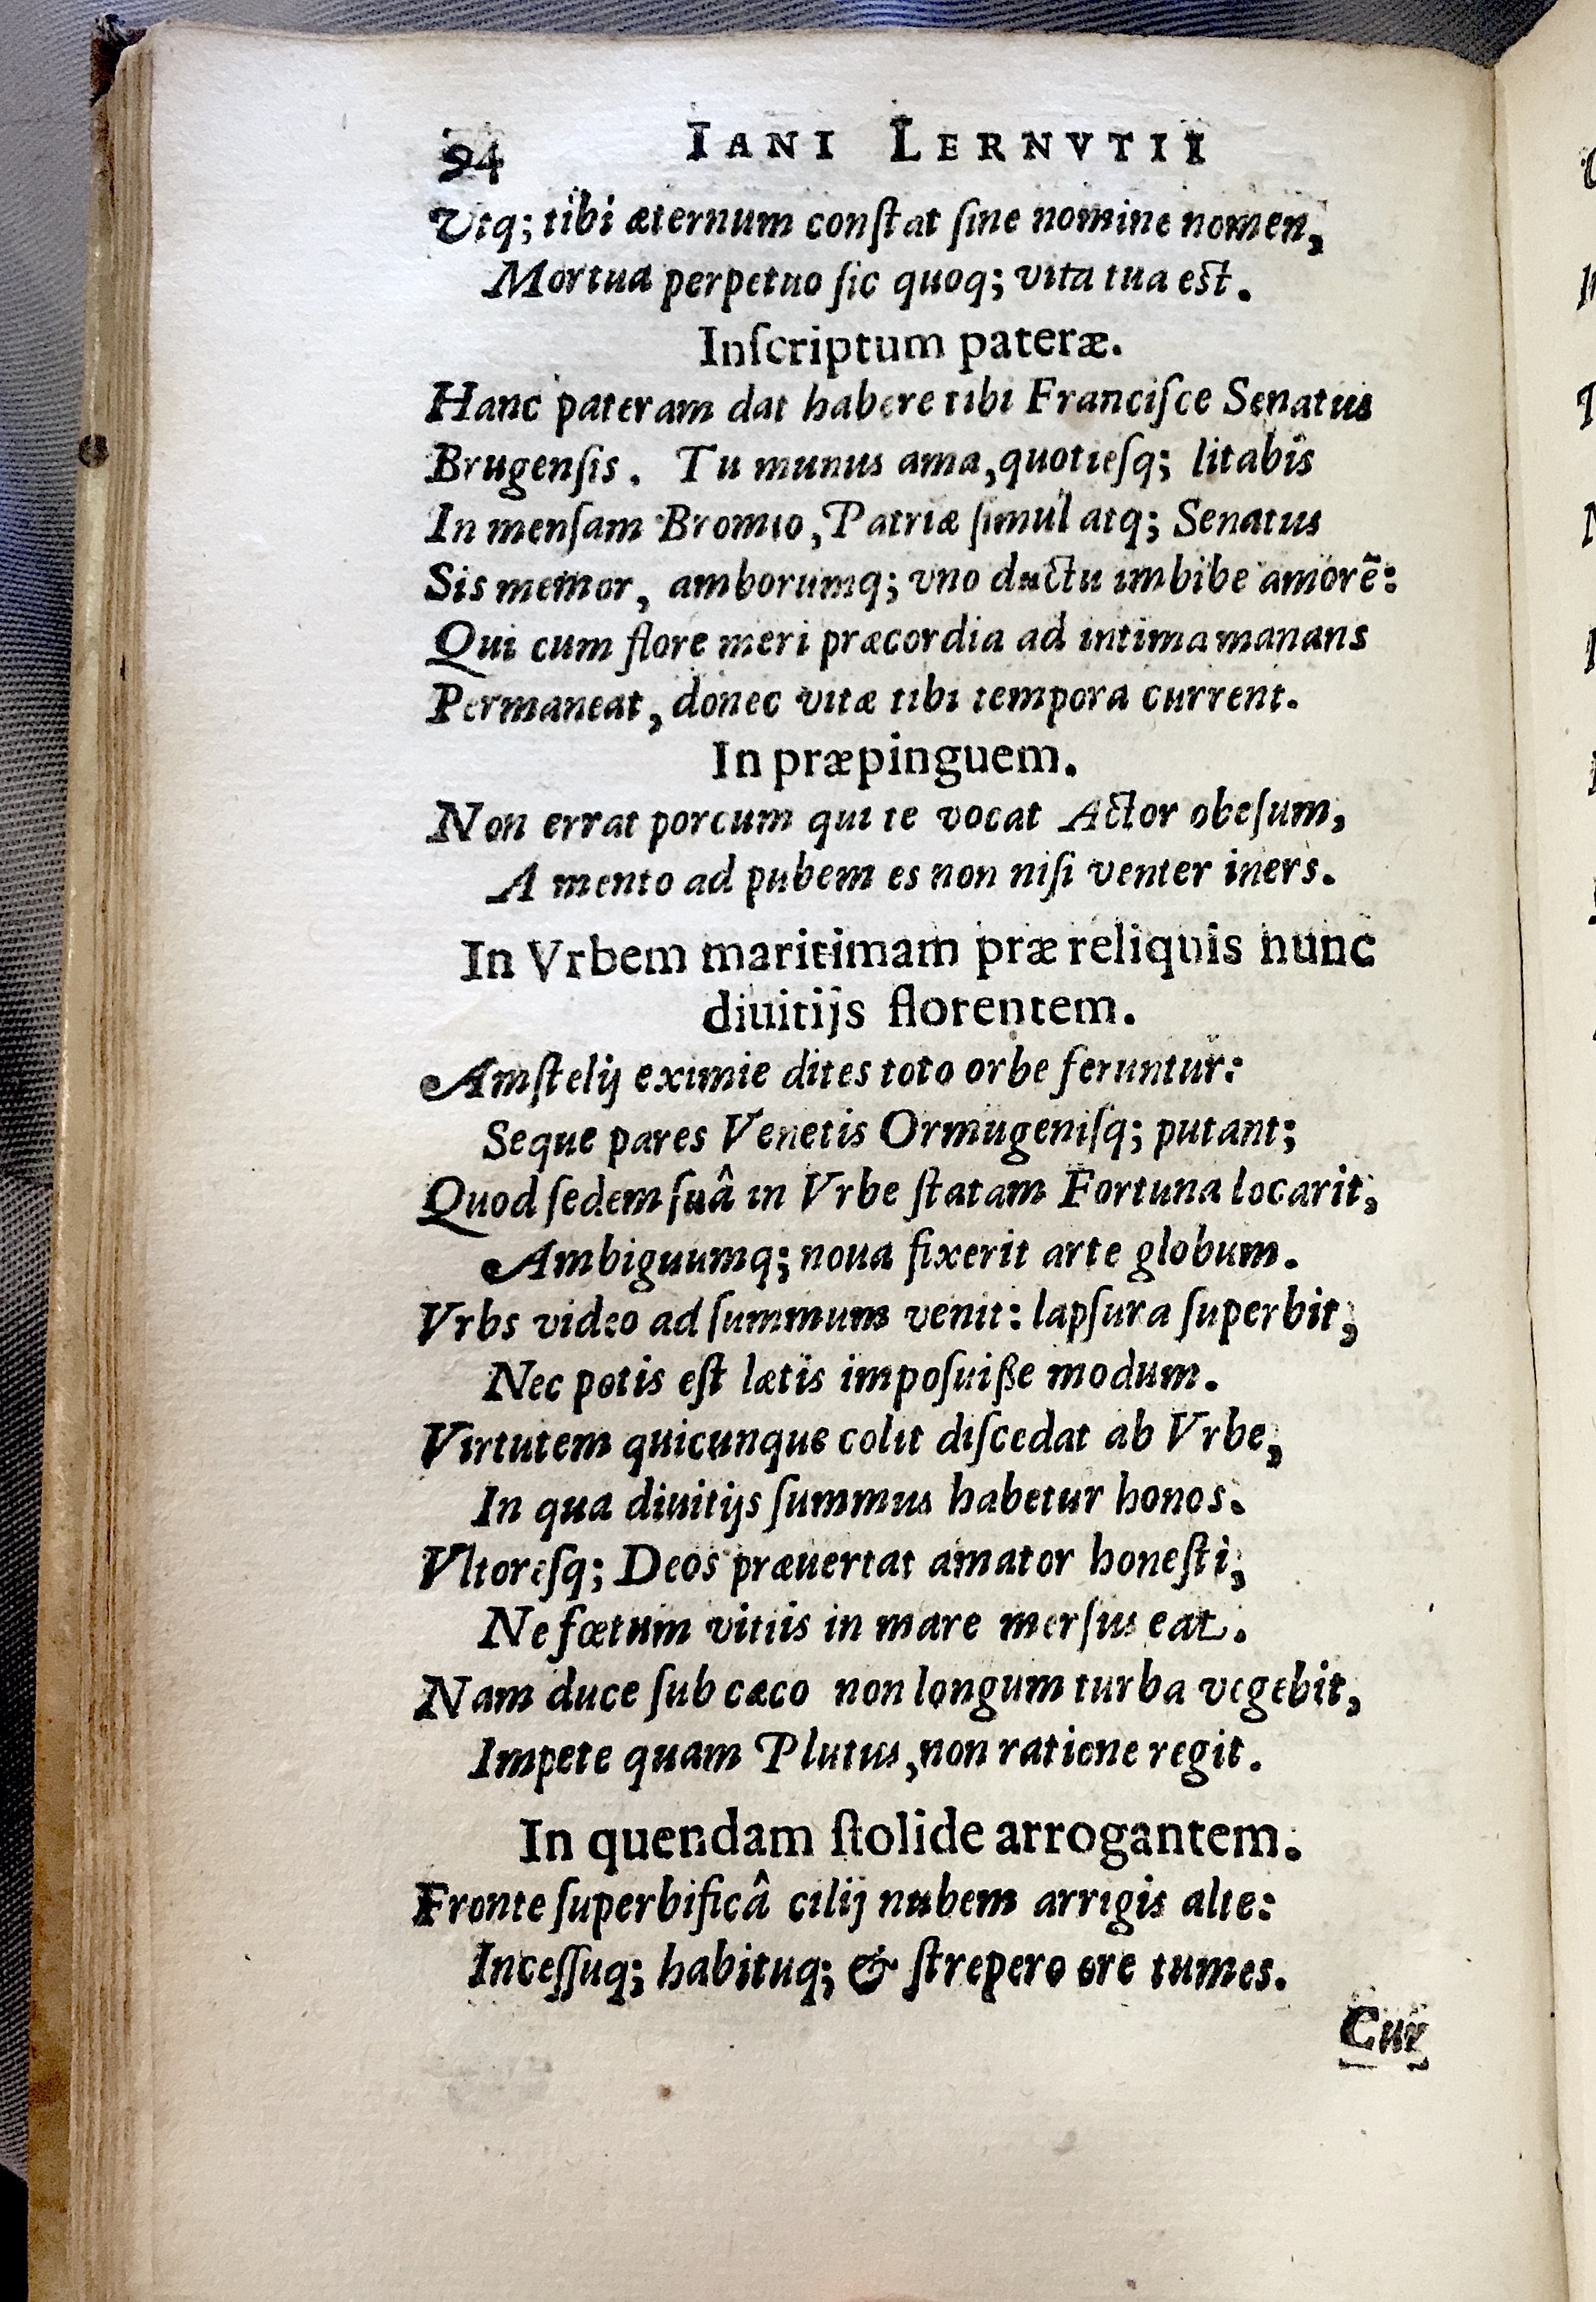 94 IANI LERNVTII
Vtq; tibi æternum conſtat ſine nomine nomen,
Mortua perpetuo ſic quoq; vita tua eſt.
Inſcriptum pateræ.
Hanc pateram dat habere tibi Franciſce Senatus
Brugenſis. Tu munus ama, quotieſq; litabis
In menſam Bromio, Patriæ ſimul atq; Senatus
Sis memor, amborumq; vno ductu imbibe amorẽ:
Qui cum flore meri præcordia ad intima manans
Permaneat, donec vitæ tibi tempora current.
In præpinguem.
Non errat porcum qui te vocat Actor obeſum,
A mento ad pubem es non niſi venter iners.
In Vrbem maritimam præ reliquis nunc
diuitijs florentem.
Amſtelij eximie dites toto orbe feruntur:
Seque pares Venetis Ormugeniſq; putant;
Quod ſedem ſuâ in Vrbe ſtatam Fortuna locarit,
Ambiguumq; noua fixerit arte globum.
Vrbs video ad ſummum venit: lapſura ſuperbit,
Nec potis eſt lætis impoſuiße modum.
Virtutem quicunque colit diſcedat ab Vrbe,
In qua diuitijs ſummus habetur honos.
Vltoreſq; Deos præuertat amator honeſti,
Ne fœtum vitiis in mare merſus eat.
Nam duce ſub cæco non longum turba vegebit,
Impete quam Plutus, non ratione regit.
In quendam ſtolide arrogantem.
Fronte ſuperbificâ cilij nubem arrigis alte:
Inceſſuq; habituq; & ſtrepero ore tumes.
Cur